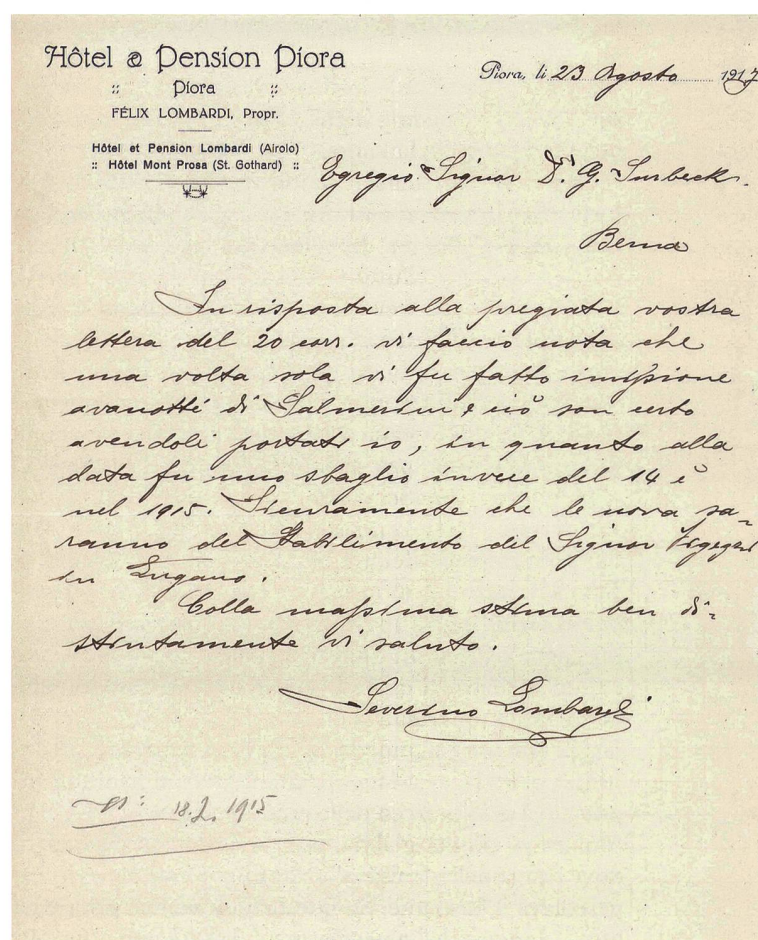 Hôtel & Pension Piora
:: Piora ::
FÉLIX LOMBARDI, Propr.
Hôtel et Pension Lombardi (Airolo)
:: Hôtel Mont Prosa (St. Gothard) ::
Piora, li 23 Agosto 1917
Egregio Signor Dr. G. Surbeck.
Berna
In risposta alla pregiata vostra
lettera del 20 corr. vi faccio nota che
una volta sola vi fu fatto immissione
avanotti di Salmerini e ciò son certo
avendoli portati io, in quanto alla
data fu uno sbaglio invece del 14 è
nel 1915. Sicuramente che le uova sa-
ranno del Stabilimento del Signor
in Lugano.
Colla massima stima ben di-
stintamente vi saluto.
Severino Lombardi
18.2.1915